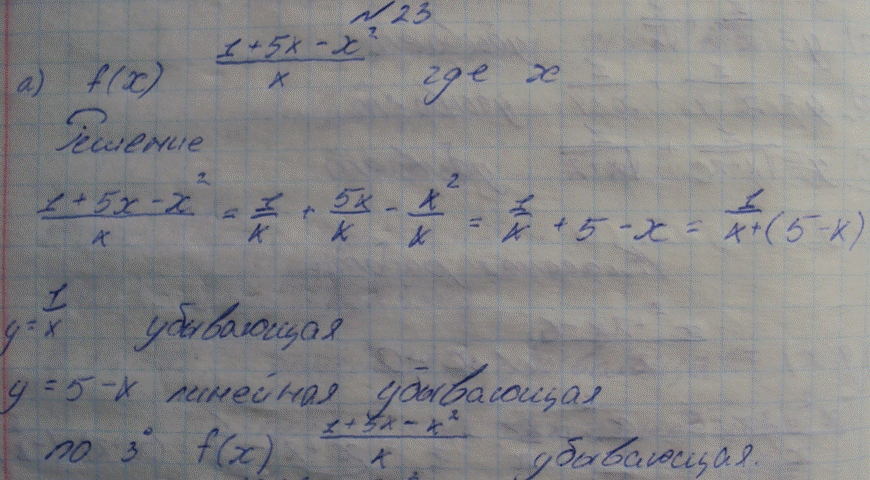 № 23
а) f(x) (1+5x-x²)/x где x
Решение
(1+5x-x²)/x = 1/x + 5x/x - x²/x = 1/x + 5 - x = 1/x+(5-x)
y=1/x убывающая
y=5-x линейная убывающая
по 3° f(x) (1+5x-x²)/x убывающая.